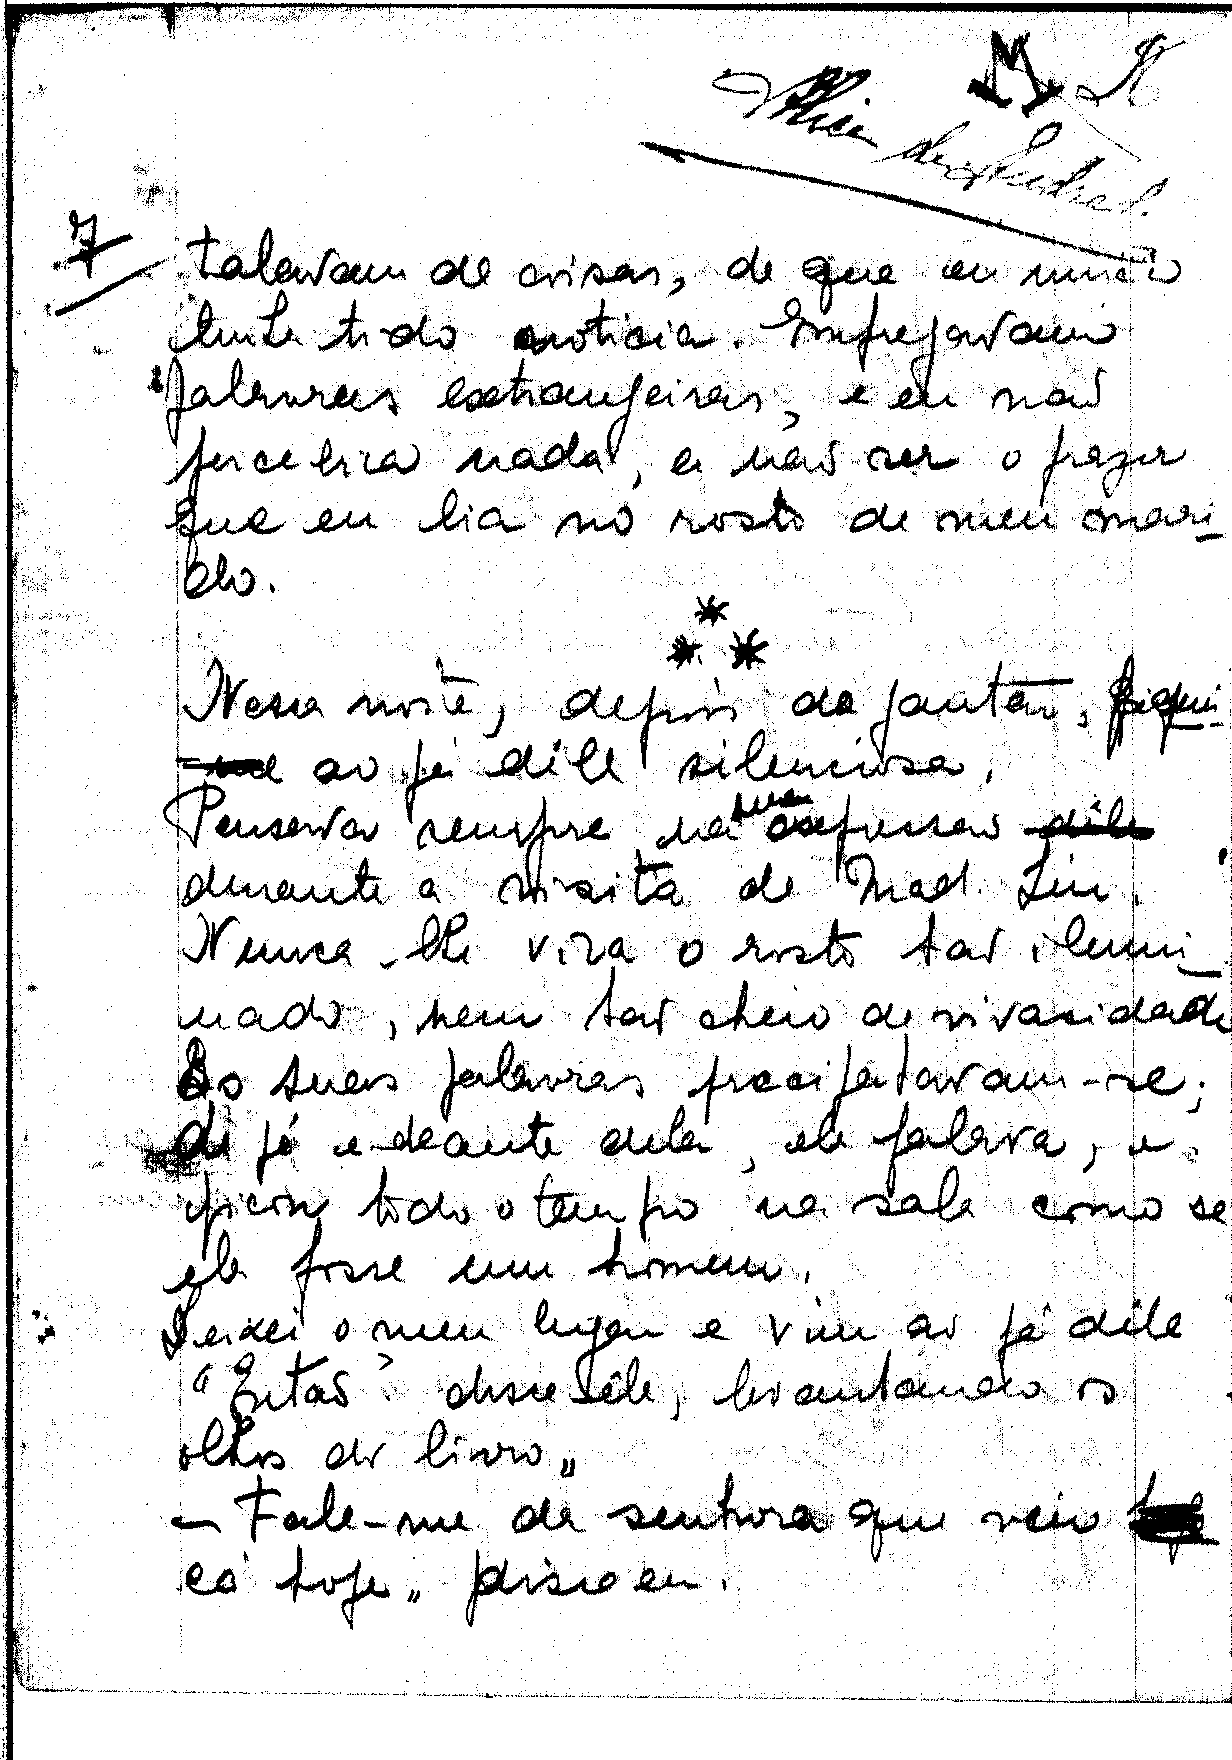 7
falavam de coisas, de que eu nunca
tinha tido noticia. Empregavam
palavras extrangeiras, e eu não
percebia nada, a não ser o prazer
que eu lia no rosto de meu mari-
do.
* * *
Nessa noite, depois do jantar, fiquei
ao pé dêle silenciosa.
Pensava sempre na sua expressão dêle
durante a visita de Mad. Liu.
Nunca lhe vira o rosto tão ilumi-
nado, nem tão cheio de vivacidade
As suas palavras precipitavam-se;
de pé e deante dela, ele falava, e
ficou todo o tempo na sala como se
ela fosse um homem.
Deixei o meu lugar e vim ao pé dêle
"Então" disse êle, levantando os
olhos do livro„
— Fale-me da senhora que veio
cá hoje„ disse eu.